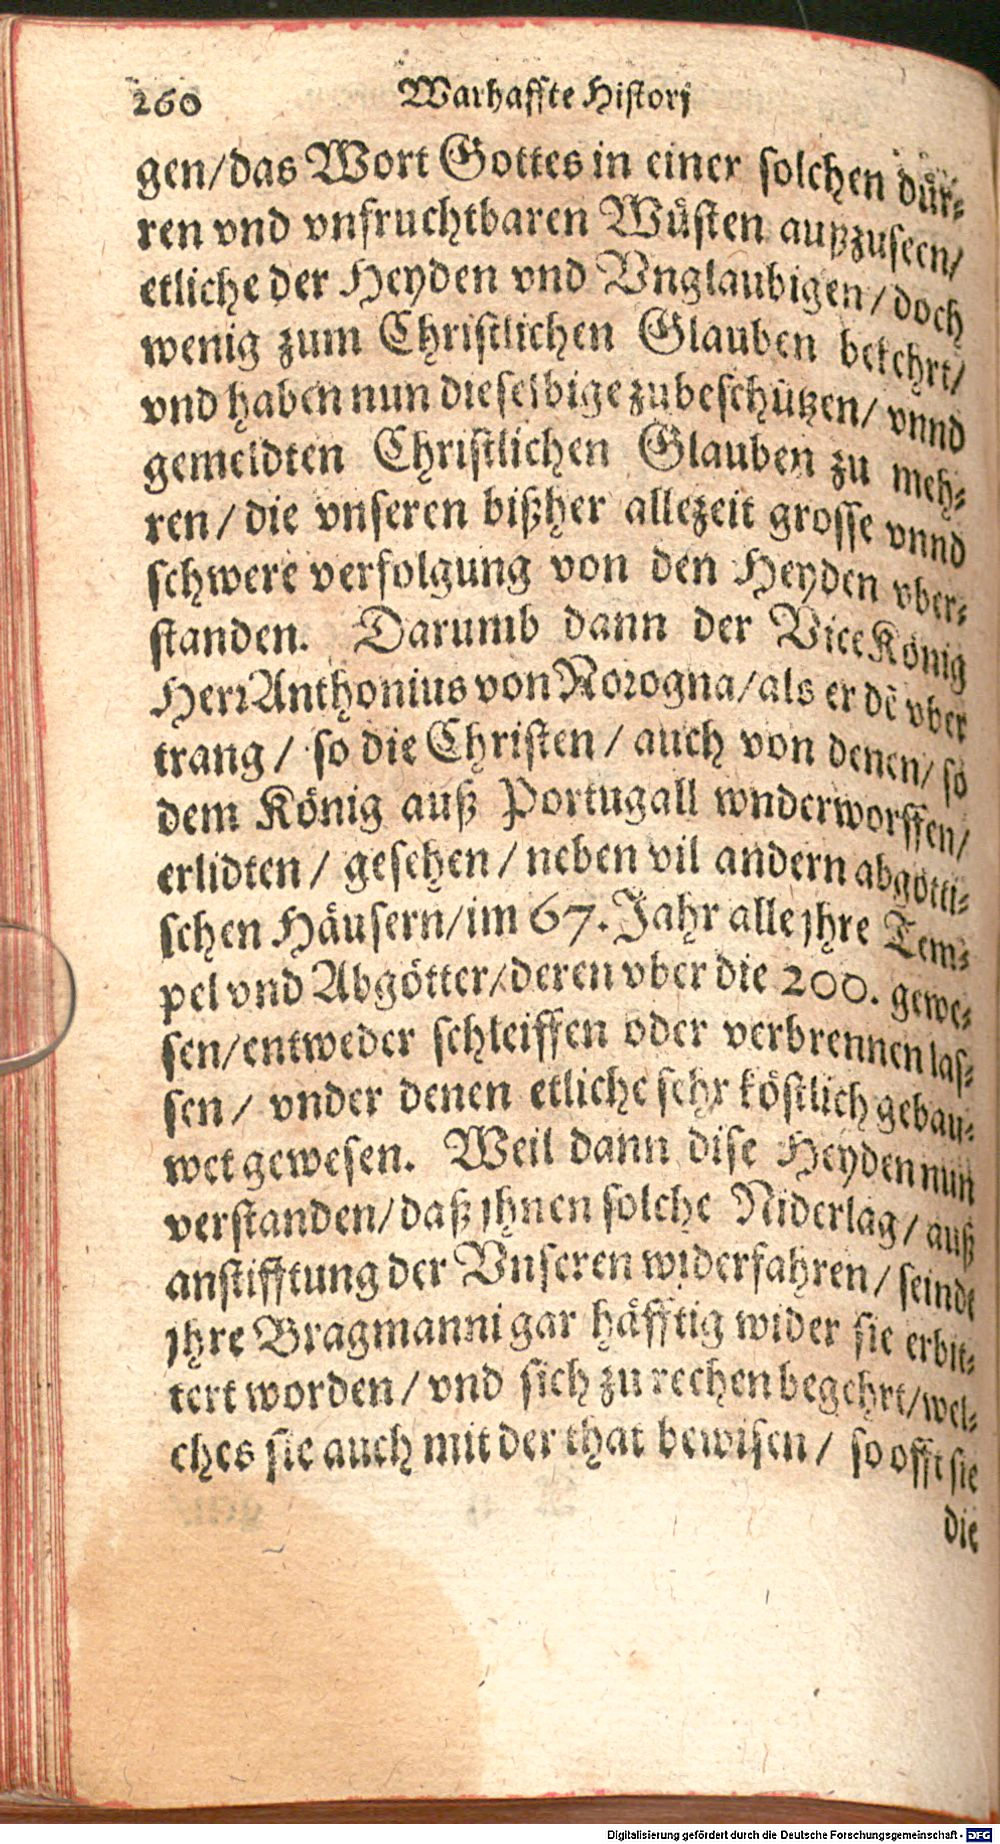 260 Warhaffte Historj
gen/das Wort Gottes in einer solchen dür-
ren vnd vnfruchtbaren Wüsten außzuseen/
etliche der Heyden vnd Vnglaubigen/doch
wenig zum Christlichen Glauben bekehrt/
vnd haben nun dieselbige zubeschützen/ vnnd
gemeldten Christlichen Glauben zu meh-
ren/ die vnseren bißher allezeit grosse vnnd
schwere verfolgung von den Heyden vber-
standen. Darumb dann der ViceKönig
Herr Anthonius von Norogna/als er dē vber
trang/ so die Christen/ auch von denen/ so
dem König auß Portugall wnderworffen/
erlidten/ gesehen/ neben vil andern abgötti-
schen Häusern/im 67. Jahr alle jhre Tem-
pel vnd Abgötter/deren vber die 200. gewe-
sen/entweder schleiffen oder verbrennen las-
sen/ vnder denen etliche sehr köstlich gebau-
wet gewesen. Weil dann dise Heyden nun
verstanden/daß jhnen solche Niderlag/ auß
anstifftung der Vnseren widerfahren/ seindt
jhre Bragmanni gar häfftig wider sie erbit-
tert worden/ vnd sich zu rechen begehrt/wel-
ches sie auch mit der that bewisen/ so offt sie
die
Digitalisierung gefördert durch die Deutsche Forschungsgemeinschaft - DFG